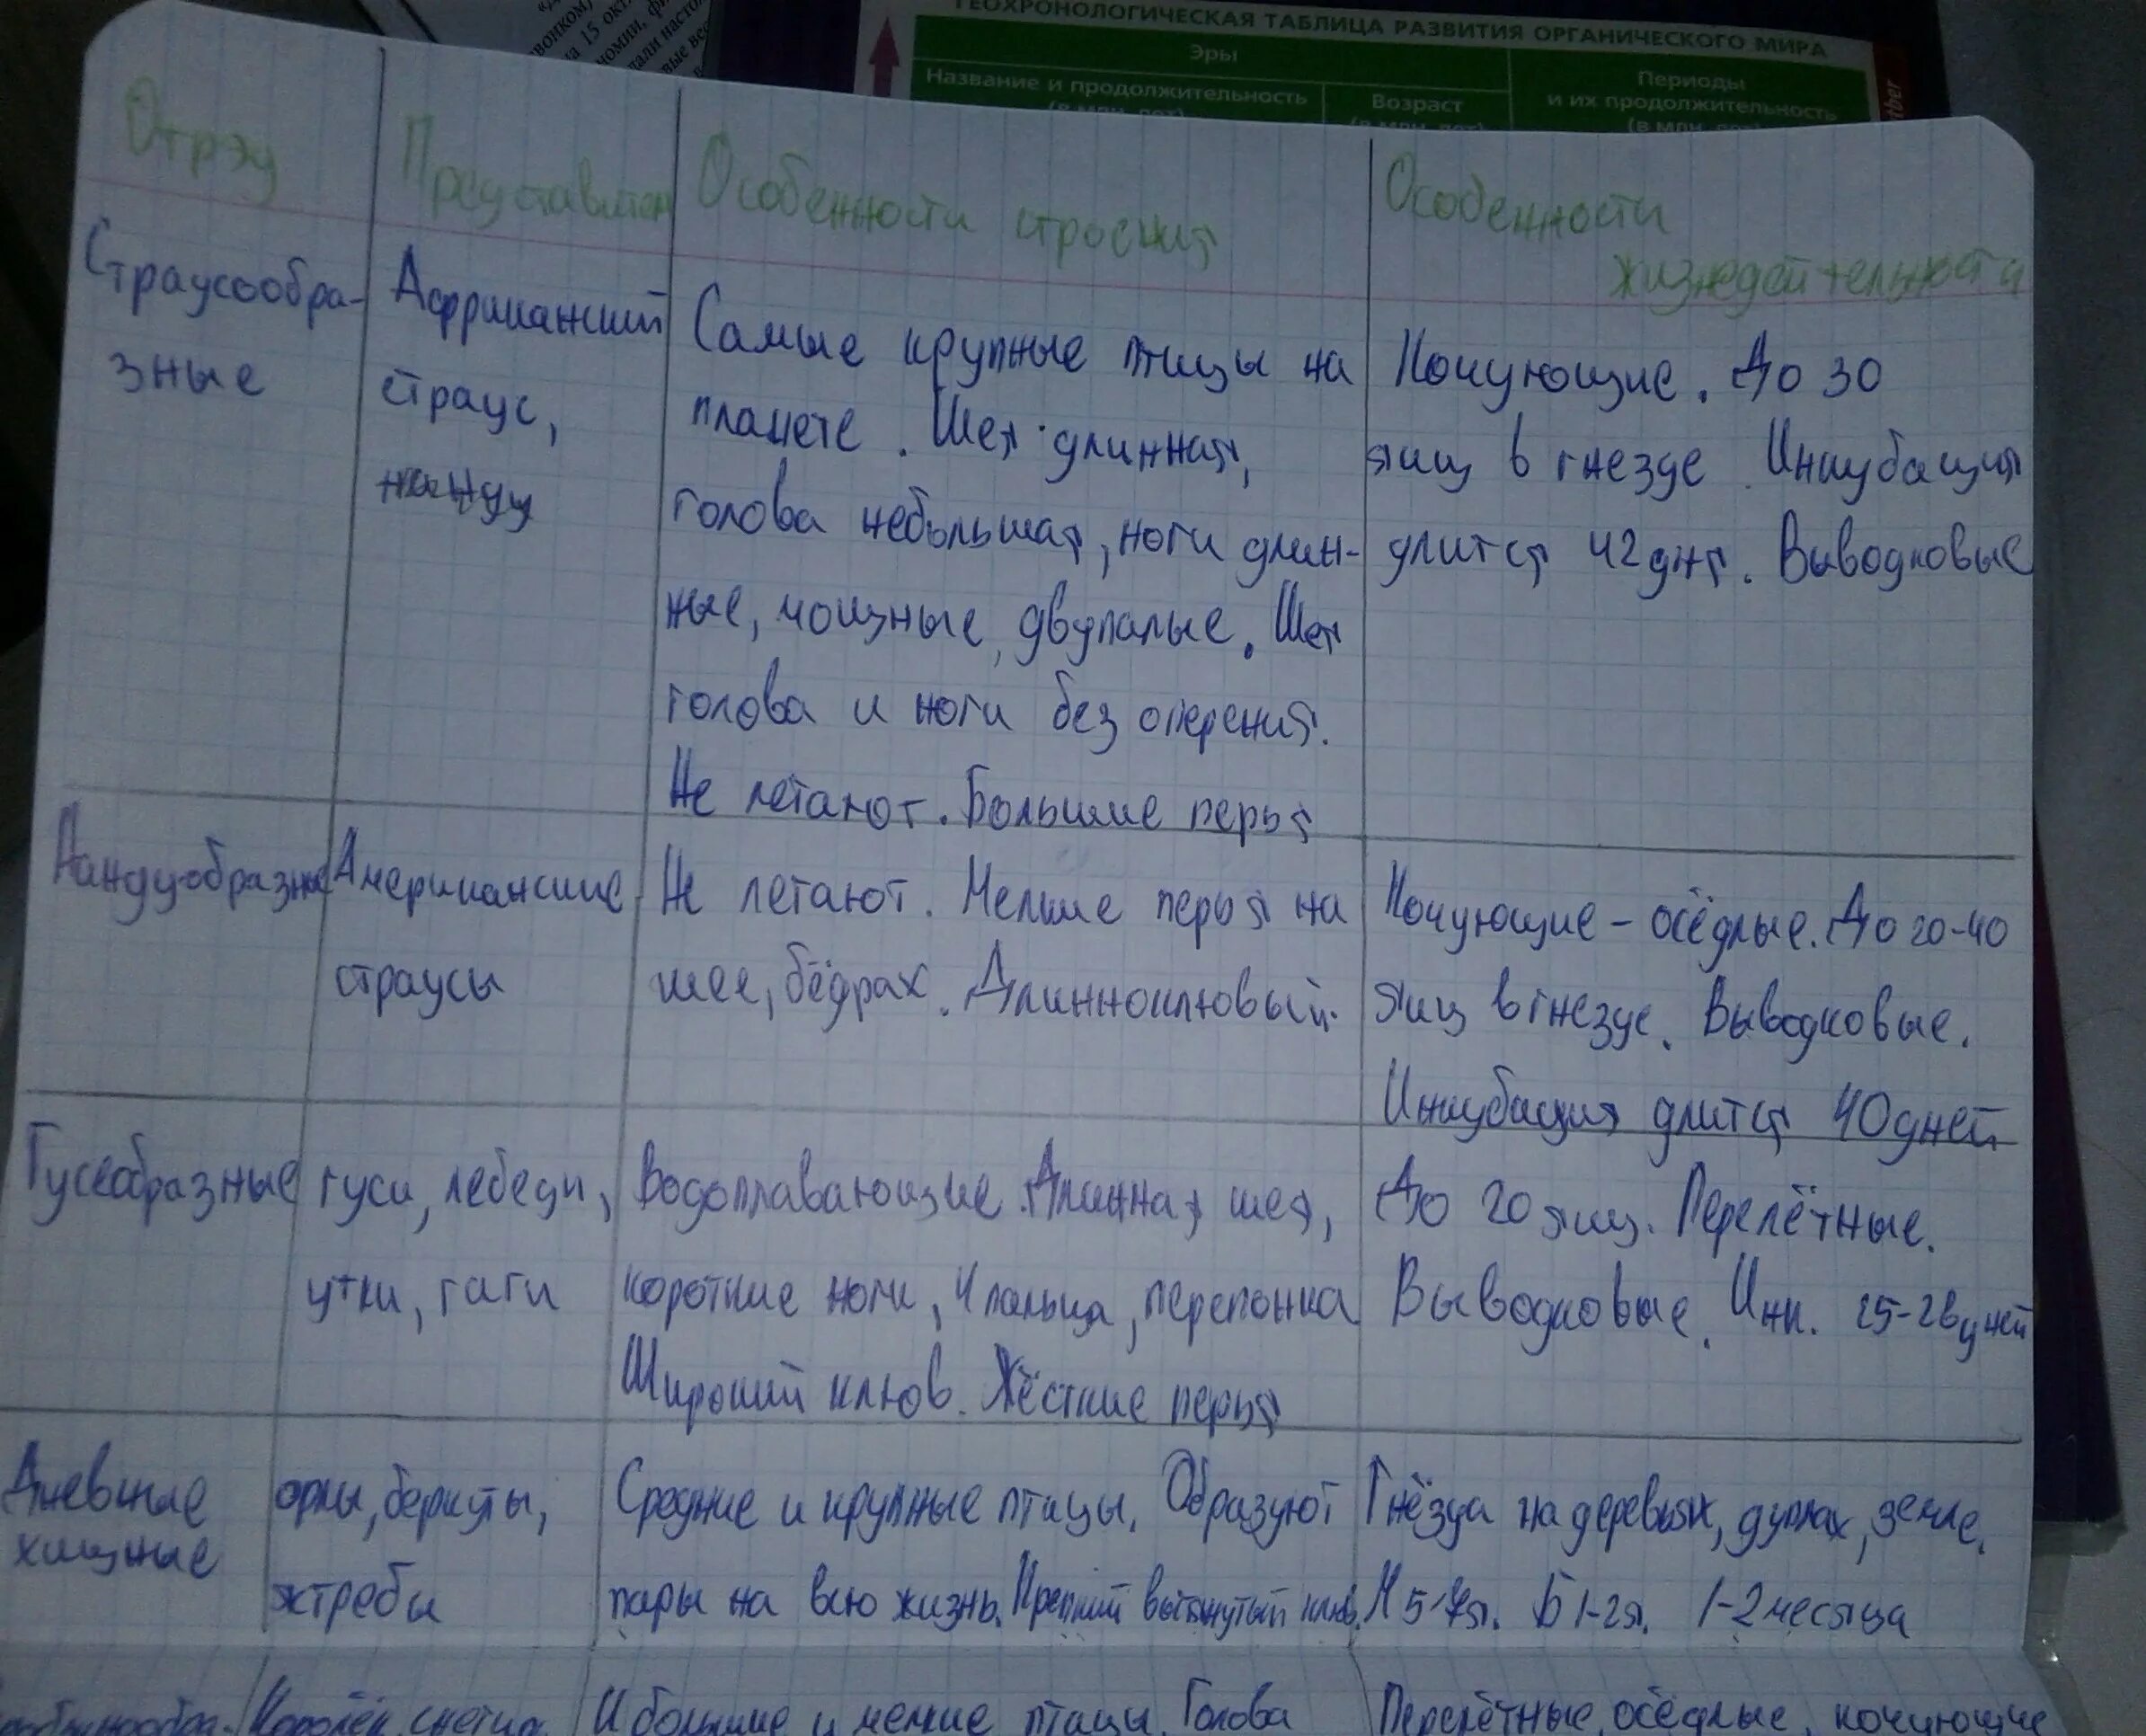 ГЕОХРОНОЛОГИЧЕСКАЯ ТАБЛИЦА РАЗВИТИЯ ОРГАНИЧЕСКОГО МИРА
Эры
Название и продолжительность
(в млн. лет)
Возраст
(в млн. лет)
Периоды
и их продолжительность
(в млн. лет)
Отряд
Представители
Особенности строения
Особенности
жизнедеятельности
Страусообра-
зные
Африканский
страус,
нанду
Самые крупные птицы на
планете. Шея длинная,
голова небольшая, ноги длин-
ные, мощные, двупалые. Шея
голова и ноги без оперения.
Не летают. Большие перья
Кочующие. До 30
яиц в гнезде. Инкубация
длится 42 дня. Выводковые
Нандуобразные
Американские
страусы
Не летают. Мелкие перья на
шее, бёдрах. Длинноклювый.
Кочующие - осёдлые. До 20-40
яиц в гнезде. Выводковые.
Инкубация длится 40 дней
Гусеобразные
гуси, лебеди,
утки, гаги
Водоплавающие. Длинная шея,
короткие ноги, 4 пальца, перепонка
Широкий клюв. Жёсткие перья
До 20 яиц. Перелётные.
Выводковые. Инк. 25-28 дней
Дневные
хищные
орлы, беркуты,
ястребы
Средние и крупные птицы. Образуют
пары на всю жизнь. Крепкий вытянутый клюв.
Гнёзда на деревьях, дуплах, земле.
М 5-7я. Б 1-2я. 1-2 месяца
Королёк
И большие и мелкие птицы. Голова
Перелётные, осёдлые, кочующие